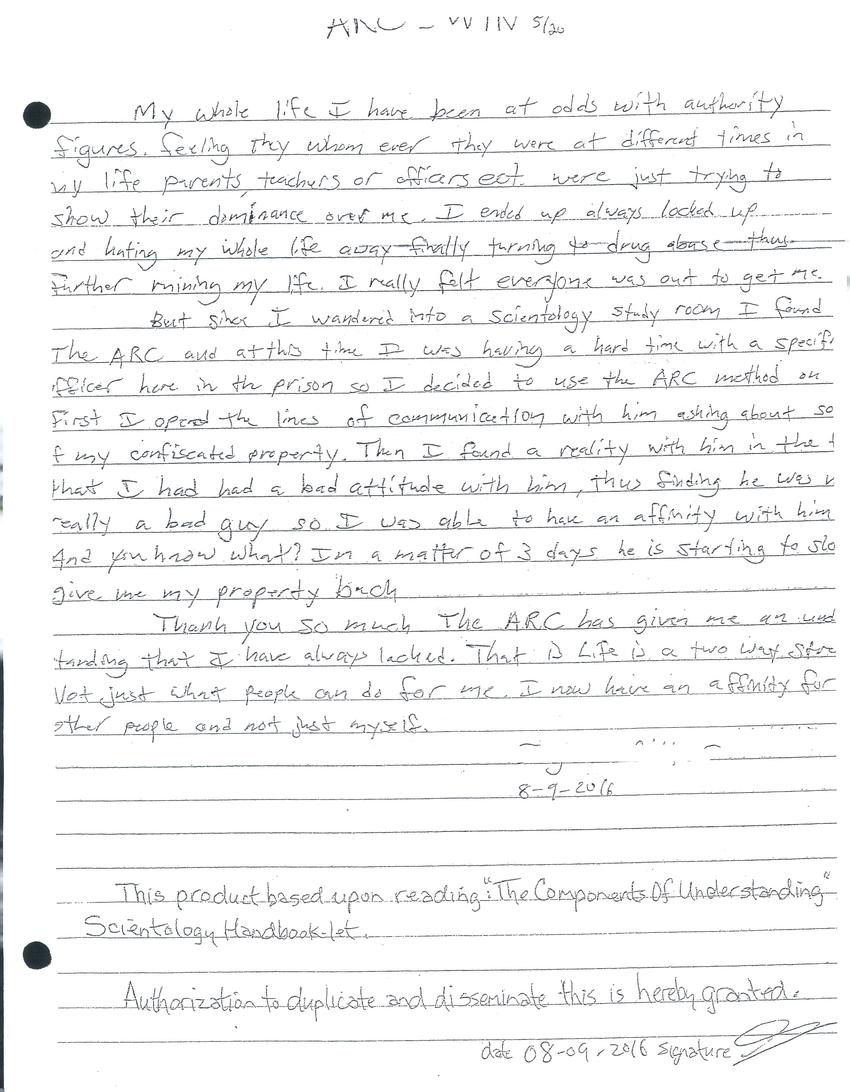 ARC - WIN 5/20
My whole life I have been at odds with authority
figures. feeling they whom ever they were at different times in
my life parents, teachers or officers ect. were just trying to
show their dominance over me. I ended up always locked up
and hating my whole life away finally turning to drug abuse thus
further ruining my life. I really felt everyone was out to get me.
But since I wandered into a Scientology study room I found
The ARC and at this time I was having a hard time with a specifi
fficer here in the prison so I decided to use the ARC method on
First I opend the lines of communication with him asking about so
f my confiscated property. Then I found a reality with him in the t
that I had had a bad attitude with him, thus finding he was
really a bad guy so I was able to have an affinity with him
And you know what? In a matter of 3 days he is starting to slo
give me my property back
Thank you so much The ARC has given me an und
tanding that I have always lacked. That is Life is a two way stre
Not just what people can do for me. I now have an affinity for
other people and not just myself.
8-9-2016
This product based upon reading "The Components Of Understanding"
Scientology Handbook-let.
Authorization to duplicate and disseminate this is hereby granted.
date 08-09-2016 signature